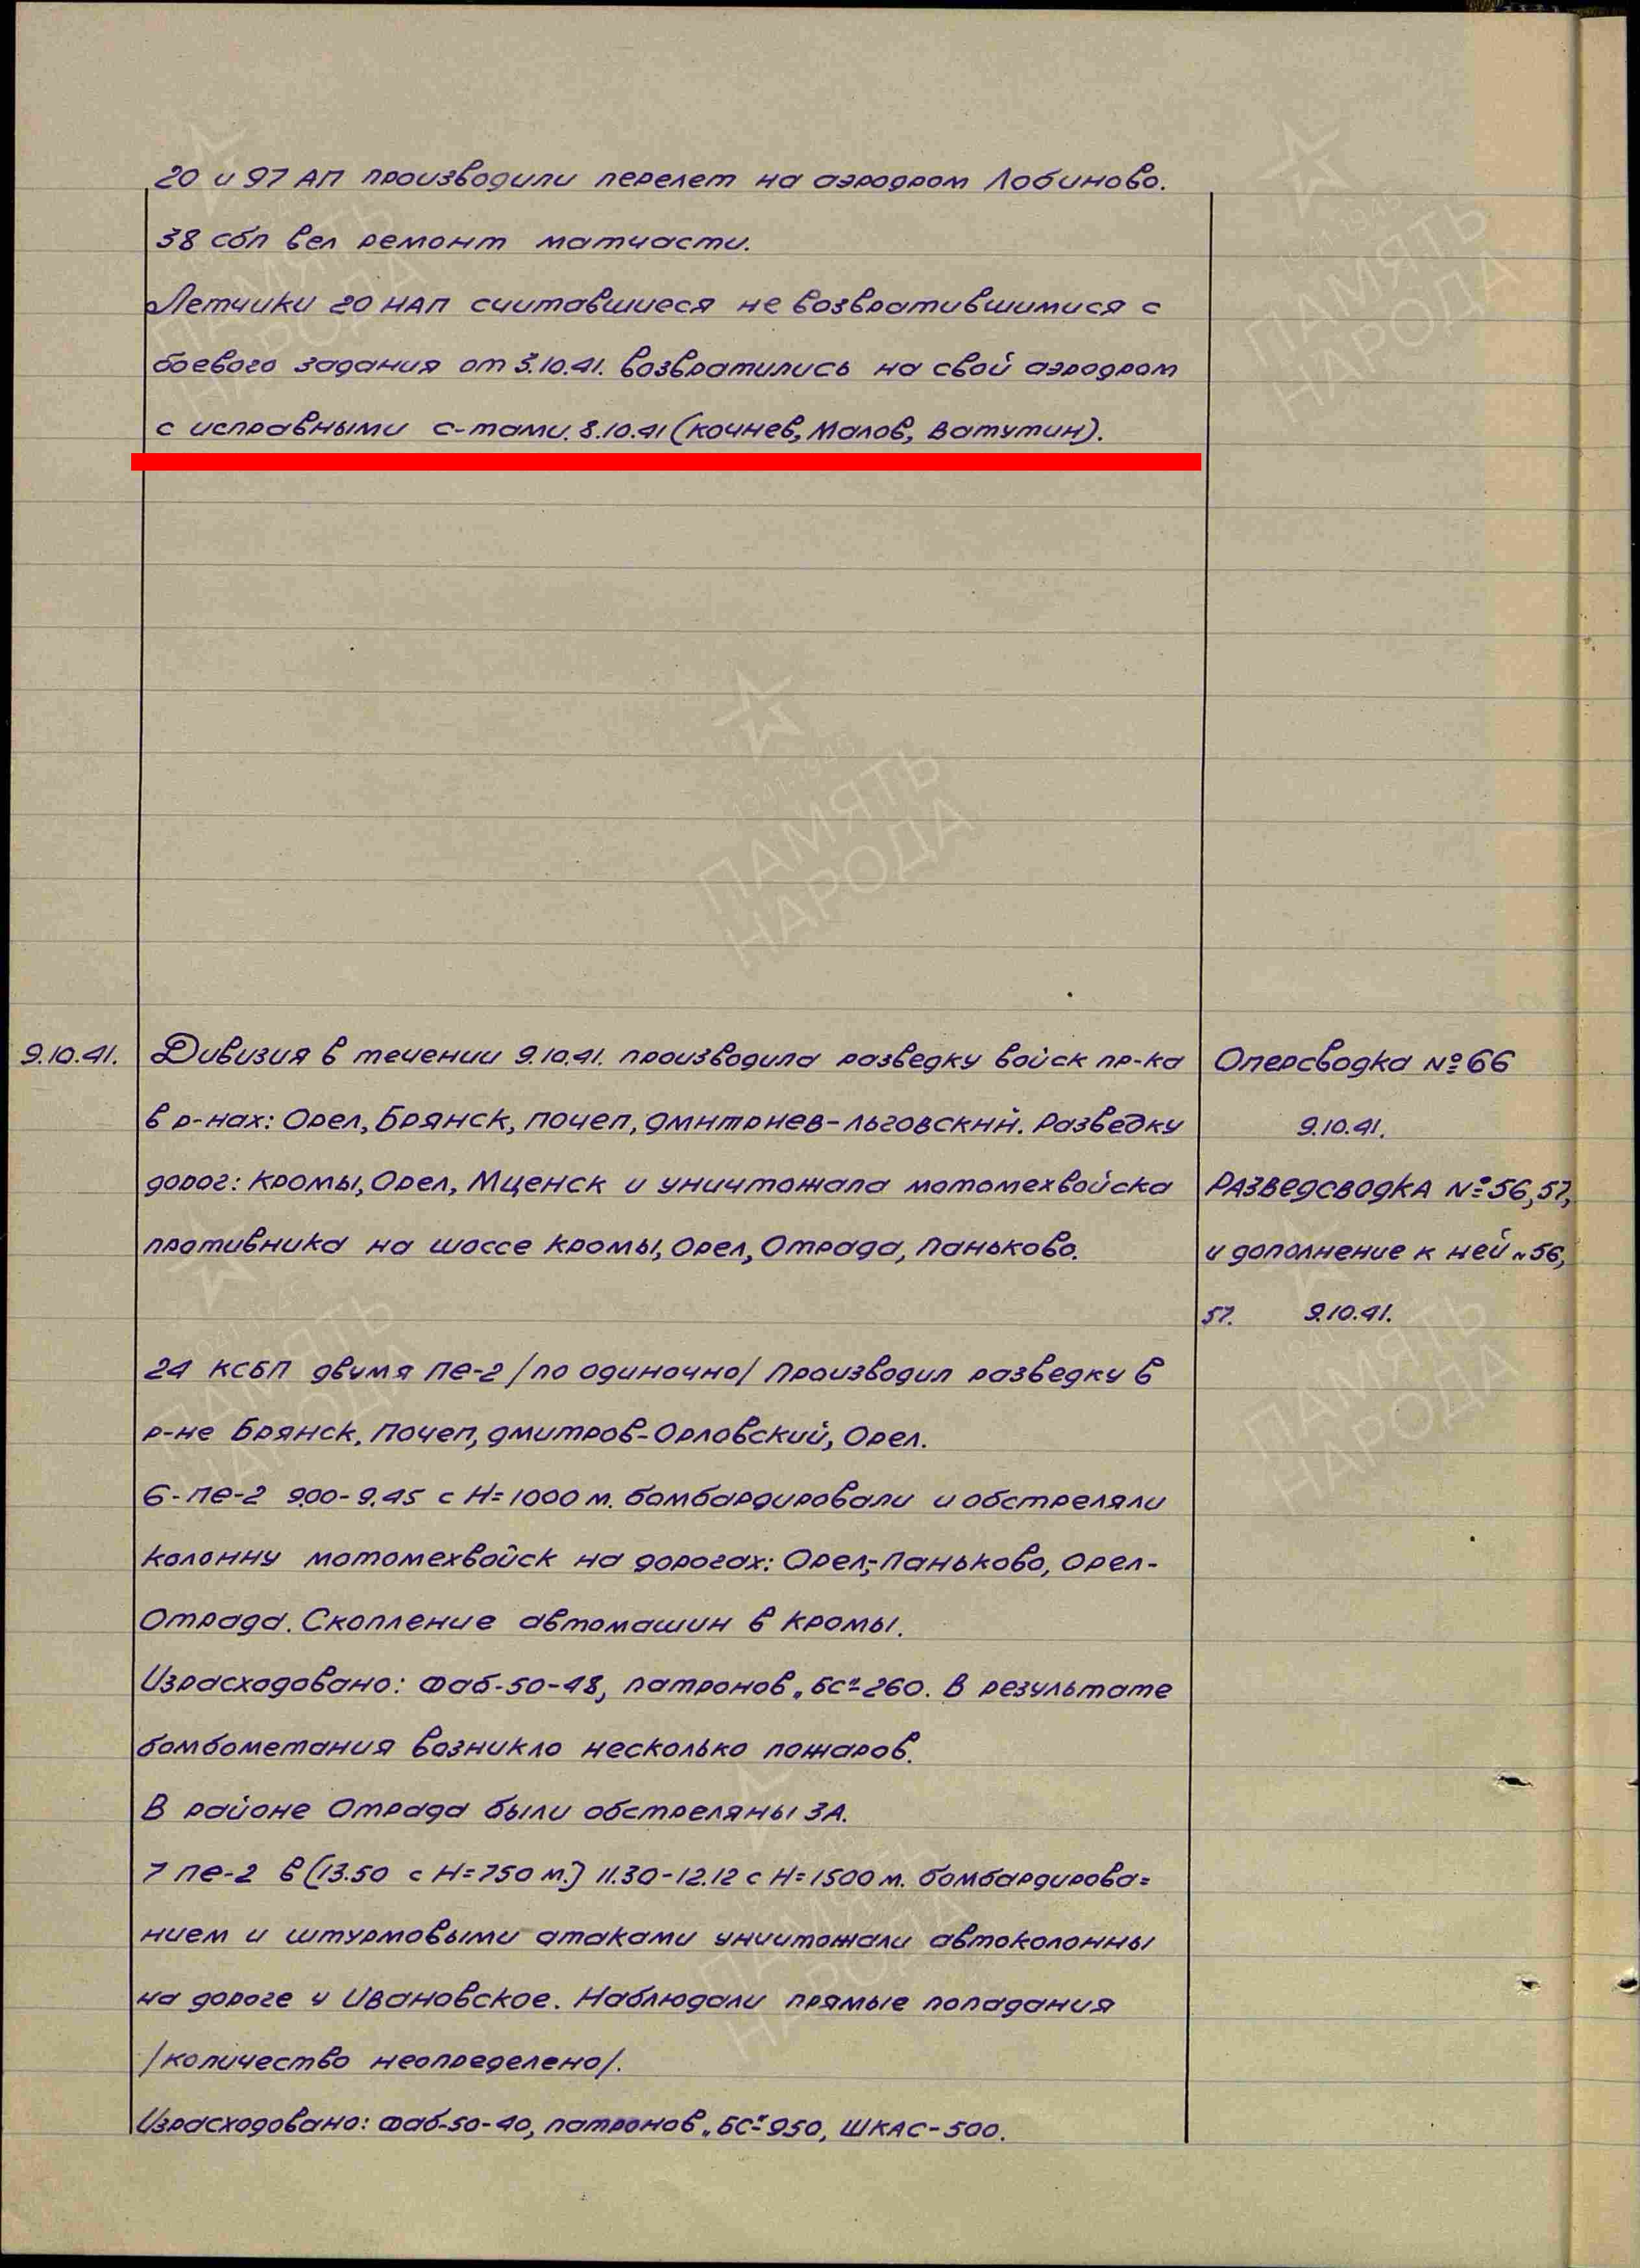 20 и 97 АП производили перелет на аэродром Лобиново.
38 сбп вел ремонт матчасти.
Летчики 20 НАП считавшиеся не возвратившимися с
боевого задания от 3.10.41. возвратились на свой аэродром
с исправными с-тами. 8.10.41 (Кочнев, Малов, Ватутин).
9.10.41.
Дивизия в течении 9.10.41. производила разведку войск пр-ка
в р-нах: Орел, Брянск, Почеп, Дмитриев-Льговский. Разведку
дорог: Кромы, Орел, Мценск и уничтожала мотомехвойска
противника на шоссе Кромы, Орел, Отрада, Паньково.
Оперсводка №66
9.10.41.
Разведсводка №56, 57,
и дополнение к ней №56,
57. 9.10.41.
24 КСБП двумя Пе-2 /по одиночно/ производил разведку в
р-не Брянск, Почеп, Дмитров-Орловский, Орел.
6-Пе-2 9.00-9.45 с Н=1000 м. бомбардировали и обстреляли
колонну мотомехвойск на дорогах: Орел,-Паньково, Орел-
Отрада. Скопление автомашин в Кромы.
Израсходовано: Фаб-50-48, патронов „БС"-260. В результате
бомбометания возникло несколько пожаров.
В районе Отрада были обстреляны ЗА.
7 Пе-2 в (13.50 с Н=750 м.) 11.30-12.12 с Н=1500 м. бомбардирова=
нием и штурмовыми атаками уничтожали автоколонны
на дороге у Ивановское. Наблюдали прямые попадания
/количество неопределено/.
Израсходовано: Фаб-50-40, патронов „БС"-950, ШКАС-500.
ПАМЯТЬ
НАРОДА
ПАМЯТЬ
НАРОДА
ПАМЯТЬ
НАРОДА
ПАМЯТЬ
НАРОДА
ПАМЯТЬ
НАРОДА
ПАМЯТЬ
НАРОДА